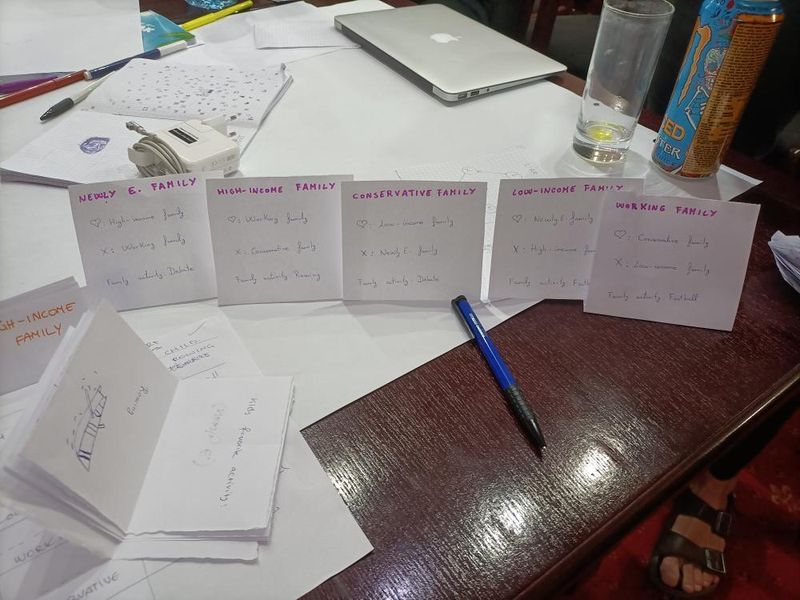 NEWLY E. FAMILY
♡: High-income family
X: Working family
Family activity: Debate
HIGH-INCOME FAMILY
♡: Working family
X: Conservative family
Family activity: Rowing
CONSERVATIVE FAMILY
♡: Low-income family
X: Newly E. family
Family activity: Debate
LOW-INCOME FAMILY
♡: Newly E. family
X: High-income fa
Family activity: Foot
WORKING FAMILY
♡: Conservative family
X: Low-income family
Family activity: Football
GH-INCOME
FAMILY
CHILD
ROWING
Rowing
Kids favorite activity:
(Newly E)
WORK
VATIVE